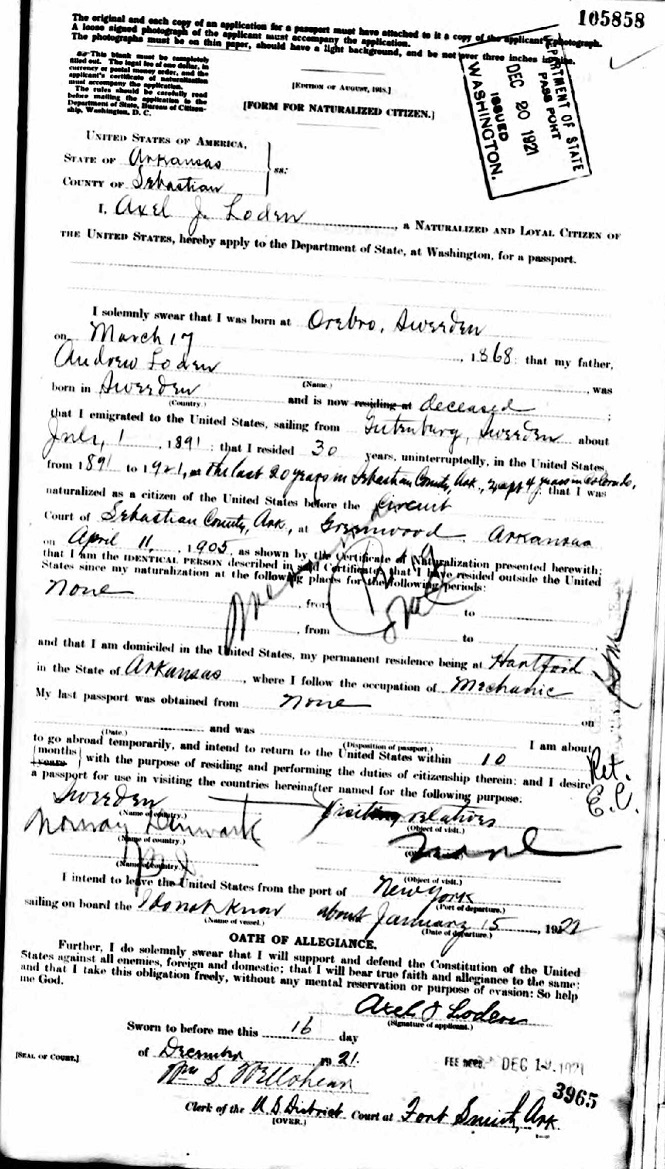 105858
The original and each copy of an application for a passport must have attached to it a copy of the applicant's photograph.
A loose signed photograph of the applicant must accompany the application.
The photographs must be on thin paper, should have a light background, and be not over three inches in size.
This blank must be completely
filled out. The legal fee of one dollar, in
currency or postal money order, and the
applicant's certificate of naturalization
must accompany the application.
The rules should be carefully read
before mailing the application to the
Department of State, Bureau of Citizen-
ship, Washington, D. C.
[EDITION OF AUGUST, 1918.]
[FORM FOR NATURALIZED CITIZEN.]
DEPARTMENT OF STATE
PASSPORT
DEC 20 1921
ISSUED
WASHINGTON.
UNITED STATES OF AMERICA,
STATE OF Arkansas
COUNTY OF Sebastian
ss:
I, Axel J. Loden, a NATURALIZED AND LOYAL CITIZEN OF
THE UNITED STATES, hereby apply to the Department of State, at Washington, for a passport.
I solemnly swear that I was born at Orebro, Sweeden
on March 17, 1868; that my father,
Andrew Loden, was
(Name.)
born in Sweeden and is now residing at deceased;
(Country.)
that I emigrated to the United States, sailing from Gutenburg, Sweeden about
July, 1, 1891; that I resided 30 years, uninterruptedly, in the United States,
from 1891 to 1921, at the last 20 years in Sebastian County, Ark., years in Colorado,; that I was
naturalized as a citizen of the United States before the Circuit
Court of Sebastian County, Ark., at Greenwood Arkansas
on April 11, 1905, as shown by the Certificate of Naturalization presented herewith;
that I am the IDENTICAL PERSON described in said Certificate; that I have resided outside the United
States since my naturalization at the following places for the following periods:
none, from to
, from to
and that I am domiciled in the United States, my permanent residence being at Hartford
in the State of Arkansas, where I follow the occupation of Mechanic
My last passport was obtained from none on
(Date.) and was (Disposition of passport.) I am about
to go abroad temporarily, and intend to return to the United States within 10
[months years] with the purpose of residing and performing the duties of citizenship therein; and I desire
Ret.
E.C.
a passport for use in visiting the countries hereinafter named for the following purpose:
Sweeden Visiting relatives
(Name of country.) (Object of visit.)
Norway Denmark
(Name of country.)
(Name of country.) (Object of visit.)
I intend to leave the United States from the port of New York
(Port of departure.)
sailing on board the I do not know about January 15, 1922
(Name of vessel.) (Date of departure.)
OATH OF ALLEGIANCE.
Further, I do solemnly swear that I will support and defend the Constitution of the United
States against all enemies, foreign and domestic; that I will bear true faith and allegiance to the same;
and that I take this obligation freely, without any mental reservation or purpose of evasion: So help
me God.
Axel J Loden
(Signature of applicant.)
Sworn to before me this 16 day
of December 1921.
[SEAL OF COURT.]
FEE DEC 19 1921
Wm S Wellshear
3965
Clerk of the U.S District Court at Fort Smith, Ark.
(OVER.)